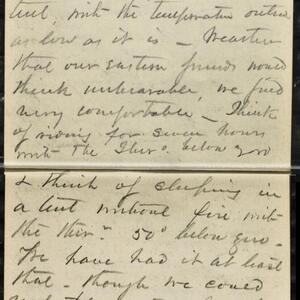 tent, with the temperature outside
as low as it is - Weather
that our eastern friends would
think unbearable, we find
very comfortable - Think
of riding for seven hours
with the Ther°. below zero
& think of sleeping in
a tent without fire with
the ther.m 50° below zero.
We have had it at least
that - though we could